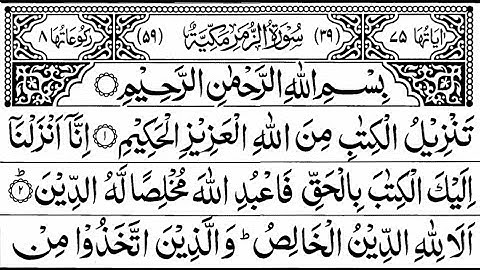 اٰيَاتُهَا ٧٥ (٣٩) سُوْرَةُ الزُّمَرِ مَكِّيَّةٌ (٥٩) رُكُوْعَاتُهَا ٨
بِسْمِ اللّٰهِ الرَّحْمٰنِ الرَّحِيْمِ
تَنْزِيْلُ الْكِتٰبِ مِنَ اللّٰهِ الْعَزِيْزِ الْحَكِيْمِ ۝١ اِنَّاۤ اَنْزَلْنَاۤ
اِلَيْكَ الْكِتٰبَ بِالْحَقِّ فَاعْبُدِ اللّٰهَ مُخْلِصًا لَّهُ الدِّيْنَ ۝٢ؕ
اَلَا لِلّٰهِ الدِّيْنُ الْخَالِصُ ؕ وَالَّذِيْنَ اتَّخَذُوْا مِنْ